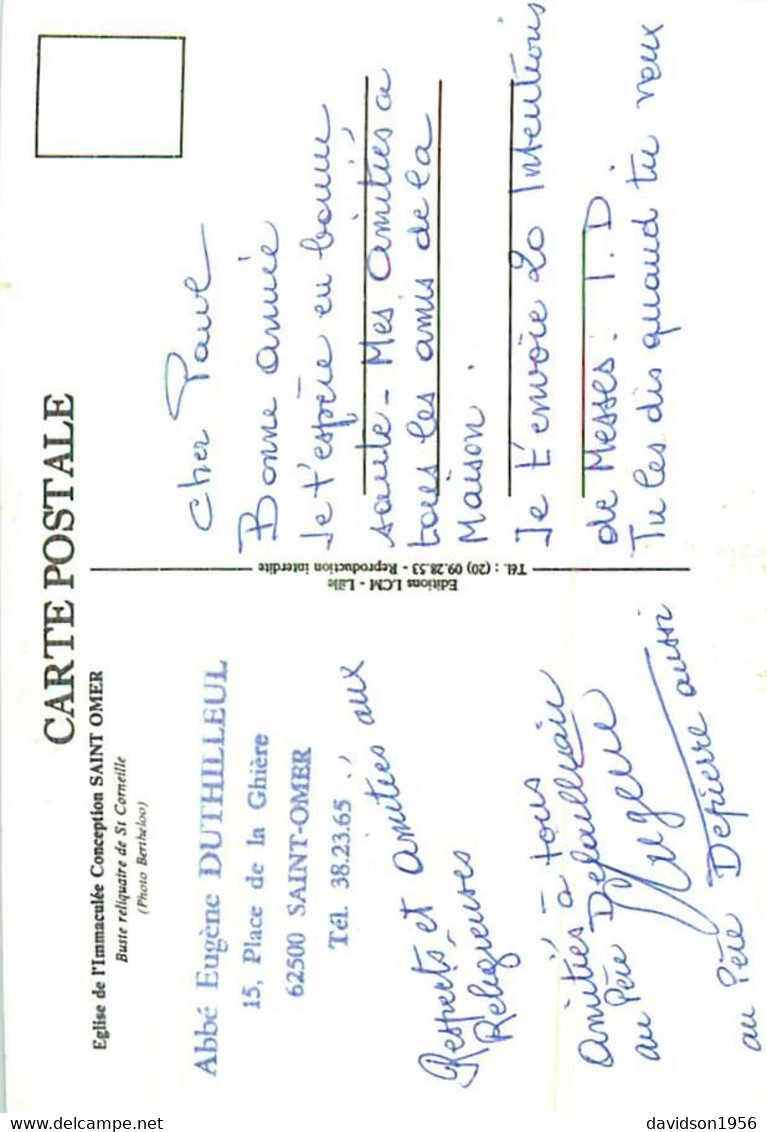 CARTE POSTALE
Eglise de l'Immaculée Conception SAINT OMER
Buste reliquaire de St Corneille
(Photo Bertheloo)
Abbé Eugène DUTHILLEUL
15, Place de la Ghière
62500 SAINT-OMER
Tél. 38.23.65
Respects et Amitiés aux
Religieuses
Amitiés à tous
au Père
Eugene
au Père Depierre aussi
Editions LCM - Lille
Tél. : (20) 09.28.53 - Reproduction interdite
Cher Paul
Bonne année
Je t'espère en bonne
santé - Mes Amitiés a
tous les amis de la
Maison.
Je t'envoie 20 Intentions
de Messes. T.D.
Tu les dis quand tu veux
www.delcampe.net
davidson1956